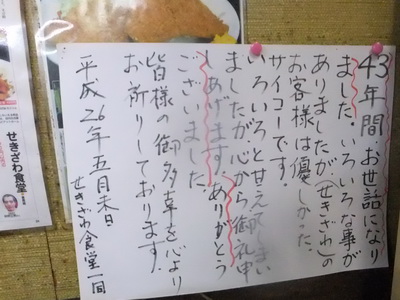 43年間お世話になり
ました。いろいろな事が
ありましたが、(せきざわ)の
お客様は優しかった、
サイコーです。
いろいろと甘えてしまい
ましたが、心から御礼申
しあげます。ありがとう
ございました
皆様の御多幸を心より
お祈りしております。
平成26年五月末日
せきざわ食堂一同
せきざわ食堂